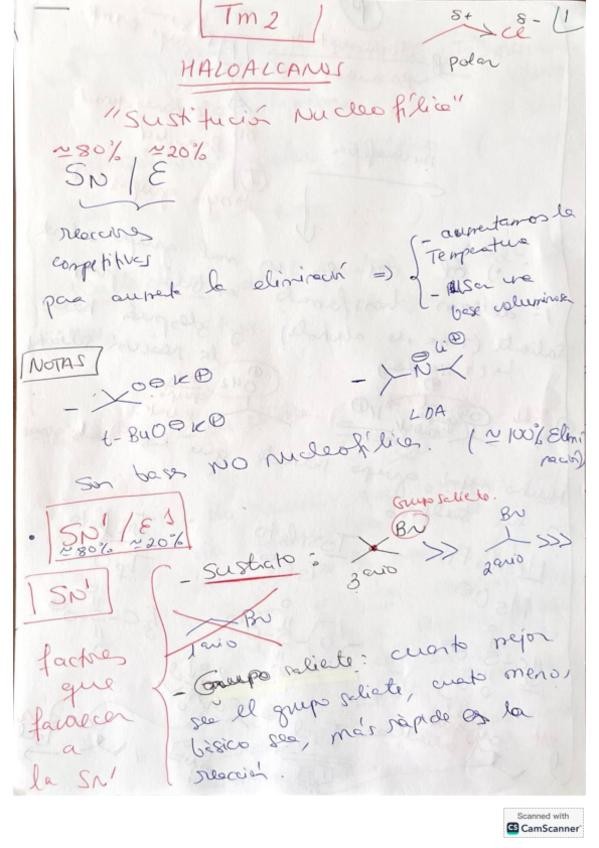 Tm 2
δ+ δ- 1
Cl
polar
HALOALCANOS
"Sustitución Nucleofílica"
≃80% ≃20%
SN / E
reacciones
competitivas
para aumentar la eliminación ⇒
- aumentamos la
Temperatura
- Usar una
base voluminosa
NOTAS
- O⊖K⊕
t-BuO⊖K⊕
- N⊖ Li⊕
LDA
Son bases NO nucleofílicas. (≃100% Elimi
nación)
• SN1 / E1
≃80% ≃20%
SN1
factores
que
favorecen
a
la SN1
- Sustrato:
Grupo saliente.
Br
3ario
>>
Br
2ario
>>>
Br
1ario
- Grupo saliente: cuanto mejor
sea el grupo saliente, cuato meno,
básico sea, más rápide es la
reacción.
Scanned with
CS CamScanner